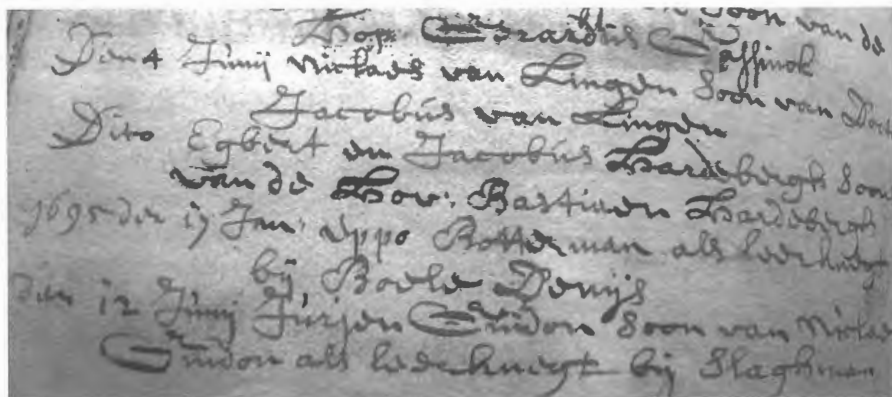 soon van de
Hop: Gerardus Gissinck
Den 4 Junij Nicklaes van Lingen Soon van Doct
Jacobus van Lingen
Dito Egbert en Jacobus Hardebergh Soon
van de Hov: Bastiaen Hardebergh
1695 den 17 Jan: eppo Botterman als leerknegt
bij Boele Denijs
den 12 Junij Jurjen Guidon Soon van Niclaes
Guidon als leerknegt bij Slaghman